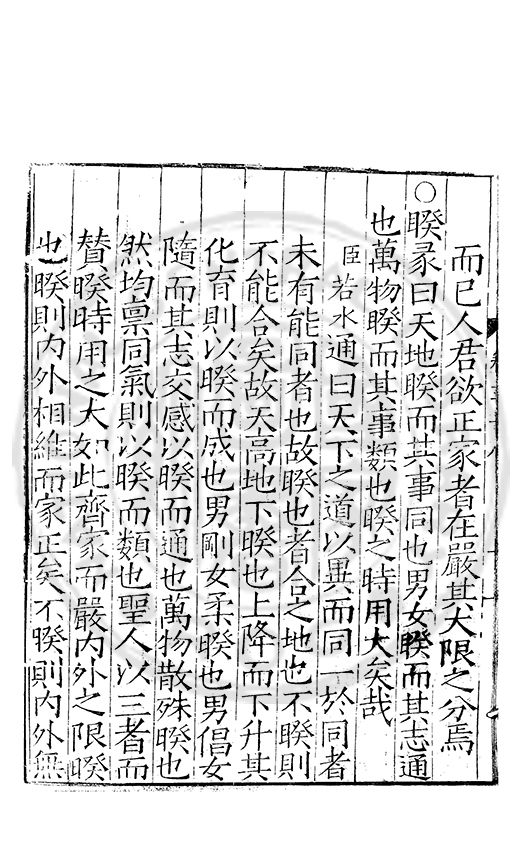 而已人君欲正家者在嚴其大限之分焉
○睽彖曰天地睽而其事同也男女睽而其志通
也萬物睽而其事類也睽之時用大矣哉
臣若水通曰天下之道以異而同一於同者
未有能同者也故睽也者合之地也不睽則
不能合矣故天高地下睽也上降而下升其
化育則以睽而成也男剛女柔睽也男倡女
隨而其志交感以睽而通也萬物散殊睽也
然均禀同氣則以睽而類也聖人以三者而
賛睽時用之大如此齊家而嚴内外之限睽
也睽則内外相維而家正矣不睽則内外無